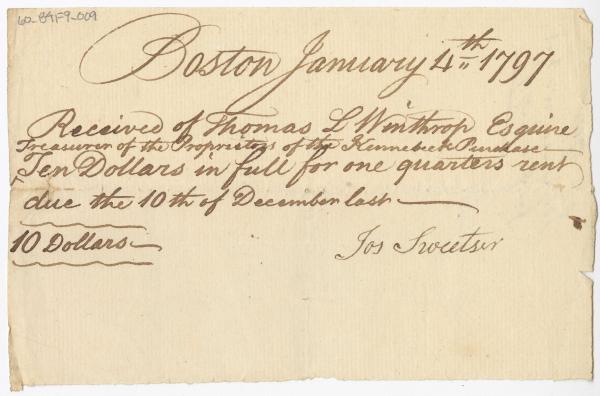 60-84F9-009
Boston January 4th 1797
Received of Thomas L Winthrop Esquire
Treasurer of the Proprietors of the Kennebeck Purchase
Ten Dollars in full for one quarters rent
due the 10th of December last
10 Dollars
Jos Sweetser